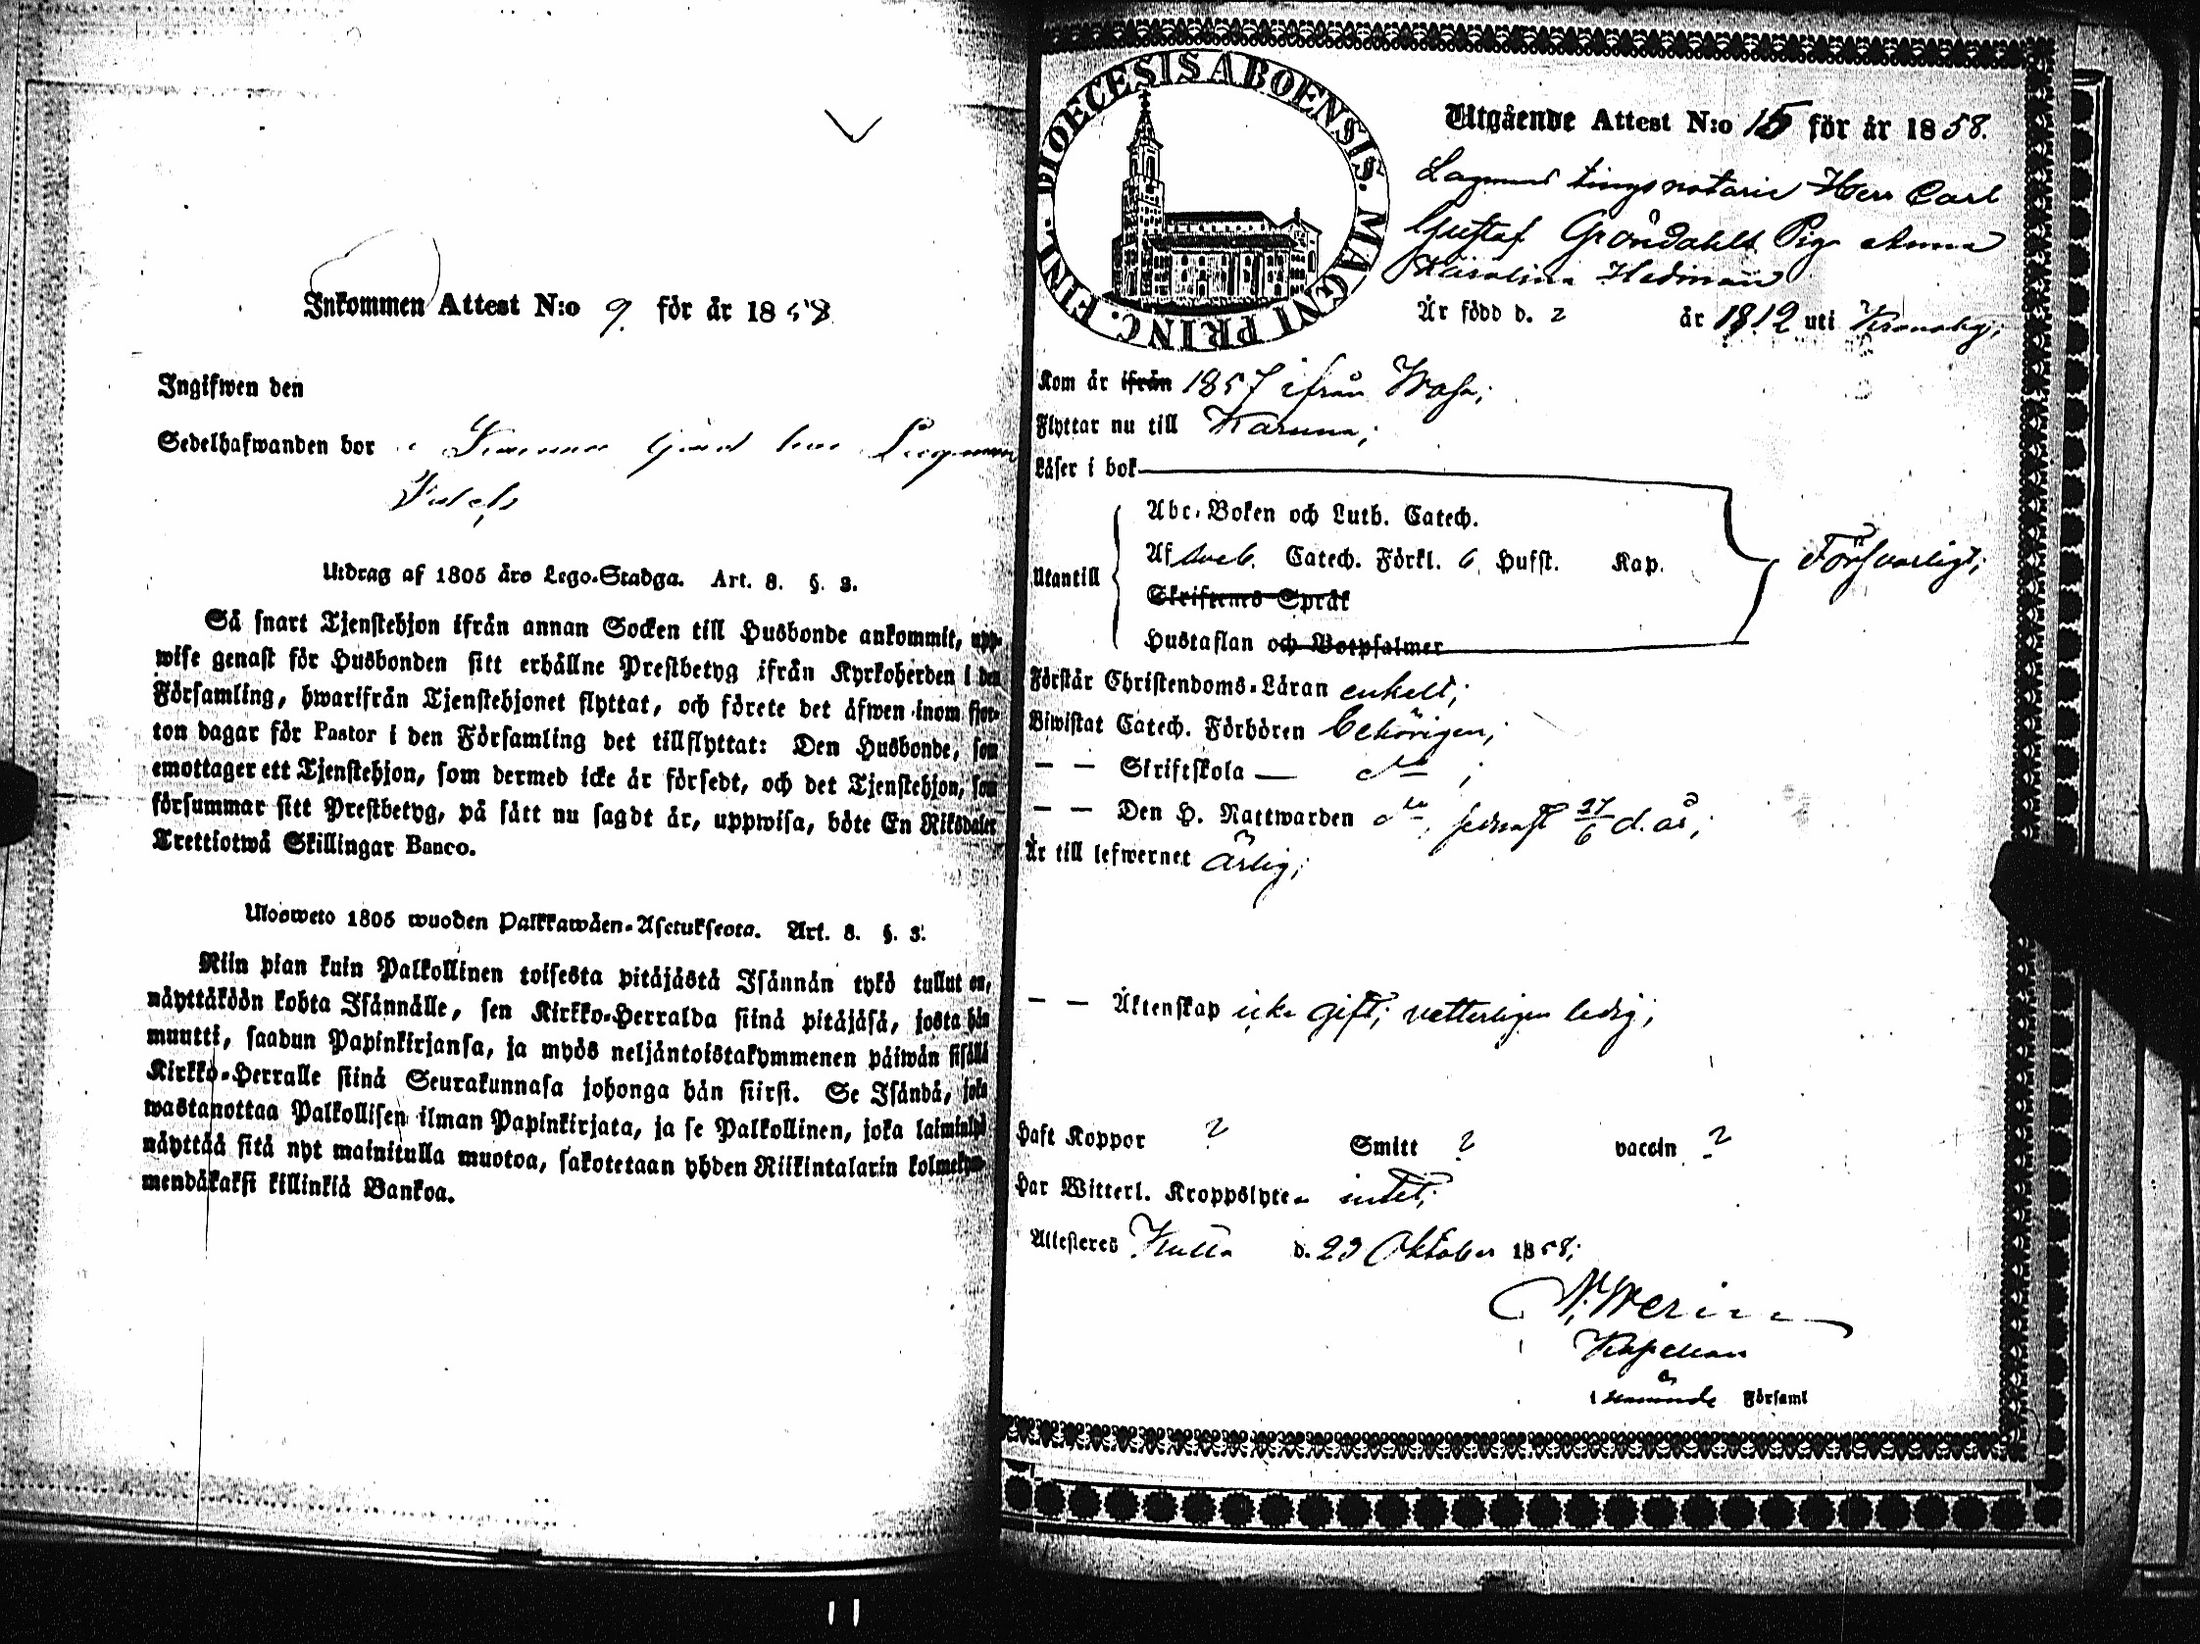 Inkommen Attest N:o 9. för år 1858
Ingifwen den
Sedelhafwanden bor
Utdrag af 1805 års Lego-Stadga. Art. 8. §. 3.
Så snart Tjenstehjon ifrån annan Socken till Husbonde ankommit, upp-
wise genast för Husbonden sitt erhållne Prestbetyg ifrån Kyrkoherden i den
Församling, hwarifrån Tjenstehjonet flyttat, och förete det äfwen inom fjor-
ton dagar för Pastor i den Församling det tillflyttat: Den Husbonde, som
emottager ett Tjenstehjon, som dermed icke är försedt, och det Tjenstehjon, som
försummar sitt Prestbetyg, på sätt nu sagdt är, uppwisa, böte En Riksdaler
Trettiotwå Skillingar Banco.
Ulosweto 1805 wuoden Palkkawäen-Asetuksesta. Art. 8. §. 3.
Niin pian kuin Palkollinen toisesta pitäjästä Isännän tykö tullut on,
näyttäköön kohta Isännälle, sen Kirkko-Herralda siinä pitäjäsä, josta hän
muutti, saadun Papinkirjansa, ja myös neljäntoistakymmenen päiwän sisällä
Kirkko-Herralle siinä Seurakunnasa johonga hän siirsi. Se Isändä, joka
wastanottaa Palkollisen ilman Papinkirjata, ja se Palkollinen, joka laiminlyö
näyttää sitä nyt mainitulla muotoa, sakotetaan yhden Riikintalarin kolmekym-
mendäkaksi killinkiä Bankoa.
DIOECESIS ABOENSIS. MAGNI PRINC. FINL.
Utgående Attest N:o 15 för år 1858.
tingsnotarie Herr Carl
Gustaf Gröndahls Pig. Anna
Karolina Hedman
Är född d. 2 år 1812 uti Kronoby;
Kom år ifrån 1857 ifrån Wasa;
Flyttar nu till Karuna;
Läser i bok
Abc-Boken och Luth. Catech.
Utantill Af Sveb. Catech. Förkl. 6 Hufst. Kap. Försvarligt;
Skriftenes Språk
Hustaflan och Botpsalmer
Förstår Christendoms-Läran enkelt;
Biwistat Catech. Förhören behörigen;
— — Skriftskola — do ;
— — Den H. Nattwarden do, senast 27/6 d. år;
Är till lefwernet ärlig;
— — Äktenskap icke gift; vetterligen ledig;
Haft Koppor ? Smitt ? vaccin ?
Har Witterl. Kroppslyten intet;
Attesteres d. 29 Oktober 1858;
Kapellan
Församl